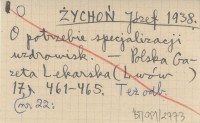 ŻYCHOŃ Józef 1938.
O potrzebie specjalizacji
uzdrowisk. — Polska Ga-
zeta Lekarska (Lwów)
17, 461-465. Też odb.
nr 22;